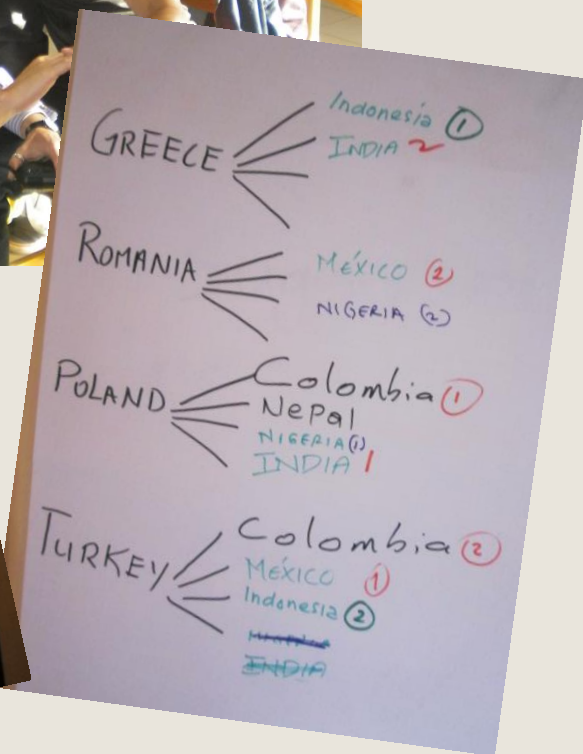 GREECE
Indonesia 1
INDIA 2
ROMANIA
MÉXICO 2
NIGERIA (2)
POLAND
Colombia 1
Nepal
NIGERIA (1)
INDIA 1
TURKEY
Colombia 2
MÉXICO 1
Indonesia 2
INDIA